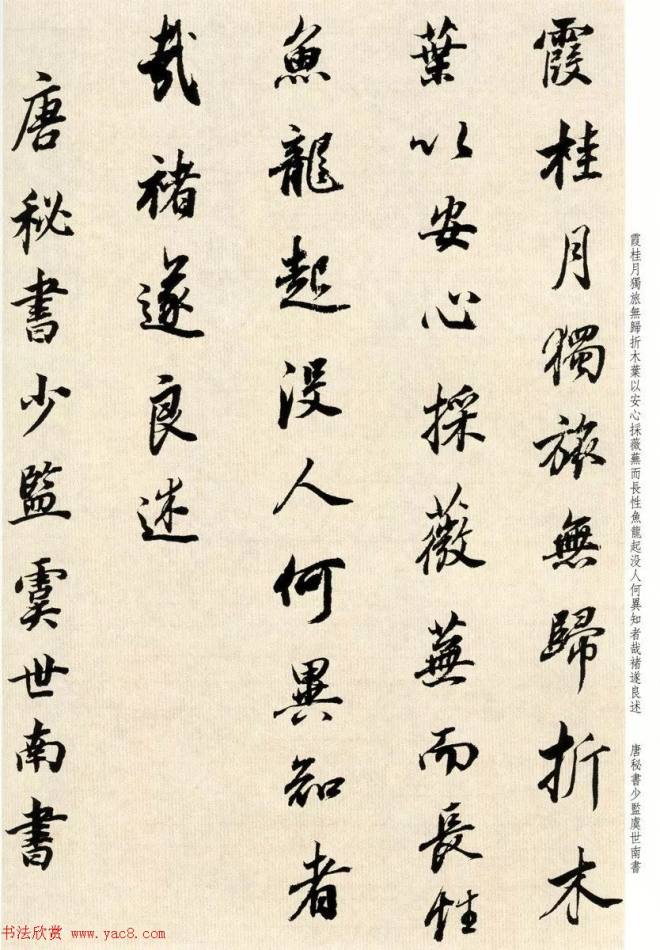 霞桂月獨旅無歸折木
葉以安心採薇蕪而長性
魚龍起没人何異知者
哉褚遂良述
唐秘書少監虞世南書
霞桂月獨旅無歸折木葉以安心採薇蕪而長性魚龍起没人何異知者哉褚遂良述　唐秘書少監虞世南書
书法欣赏 www.yac8.com